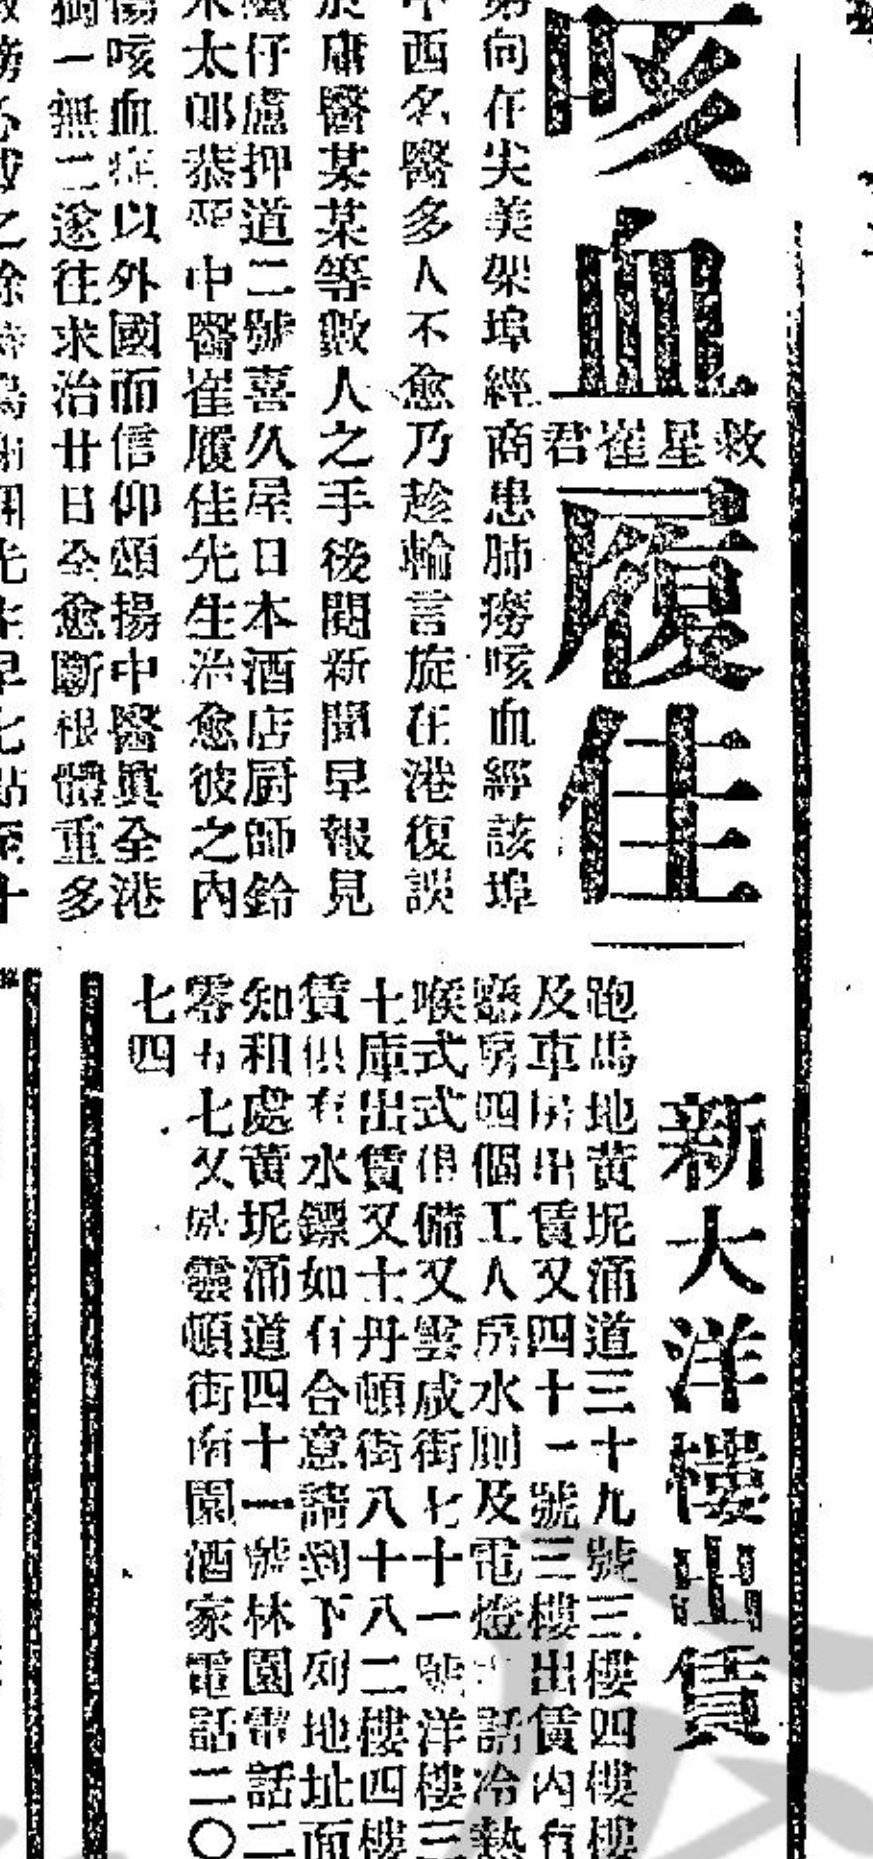 咳血
救星崔君
履佳
弟向在尖美架埠經商患肺癆咳血經該埠
中西名醫多人不愈乃趁輪言旋在港復誤
於庸醫某某等數人之手後閱新聞早報見
仔盧押道二號喜久屋日本酒店厨師鈴
木太郎恭 中醫崔履佳先生治愈彼之內
傷咳血症以外國而信仰頌揚中醫眞全港
獨一無二遂往求治廿日全愈斷根體重多
新大洋樓出賃
跑馬地黃坭涌道三十九號三樓四樓樓
及車房出賃又四十一號三樓出賃內有
房四個工人房水厠及電燈 話冷熱
喉式式俱備又雲咸街七十一號洋樓三
士庫出賃又士丹頓街八十八二樓四樓
賃俱有水鏢如有合意請到下列地址面
知和處黃坭涌道四十一號林園電話二
零五七又於雲頓街南園酒家電話二〇
七四